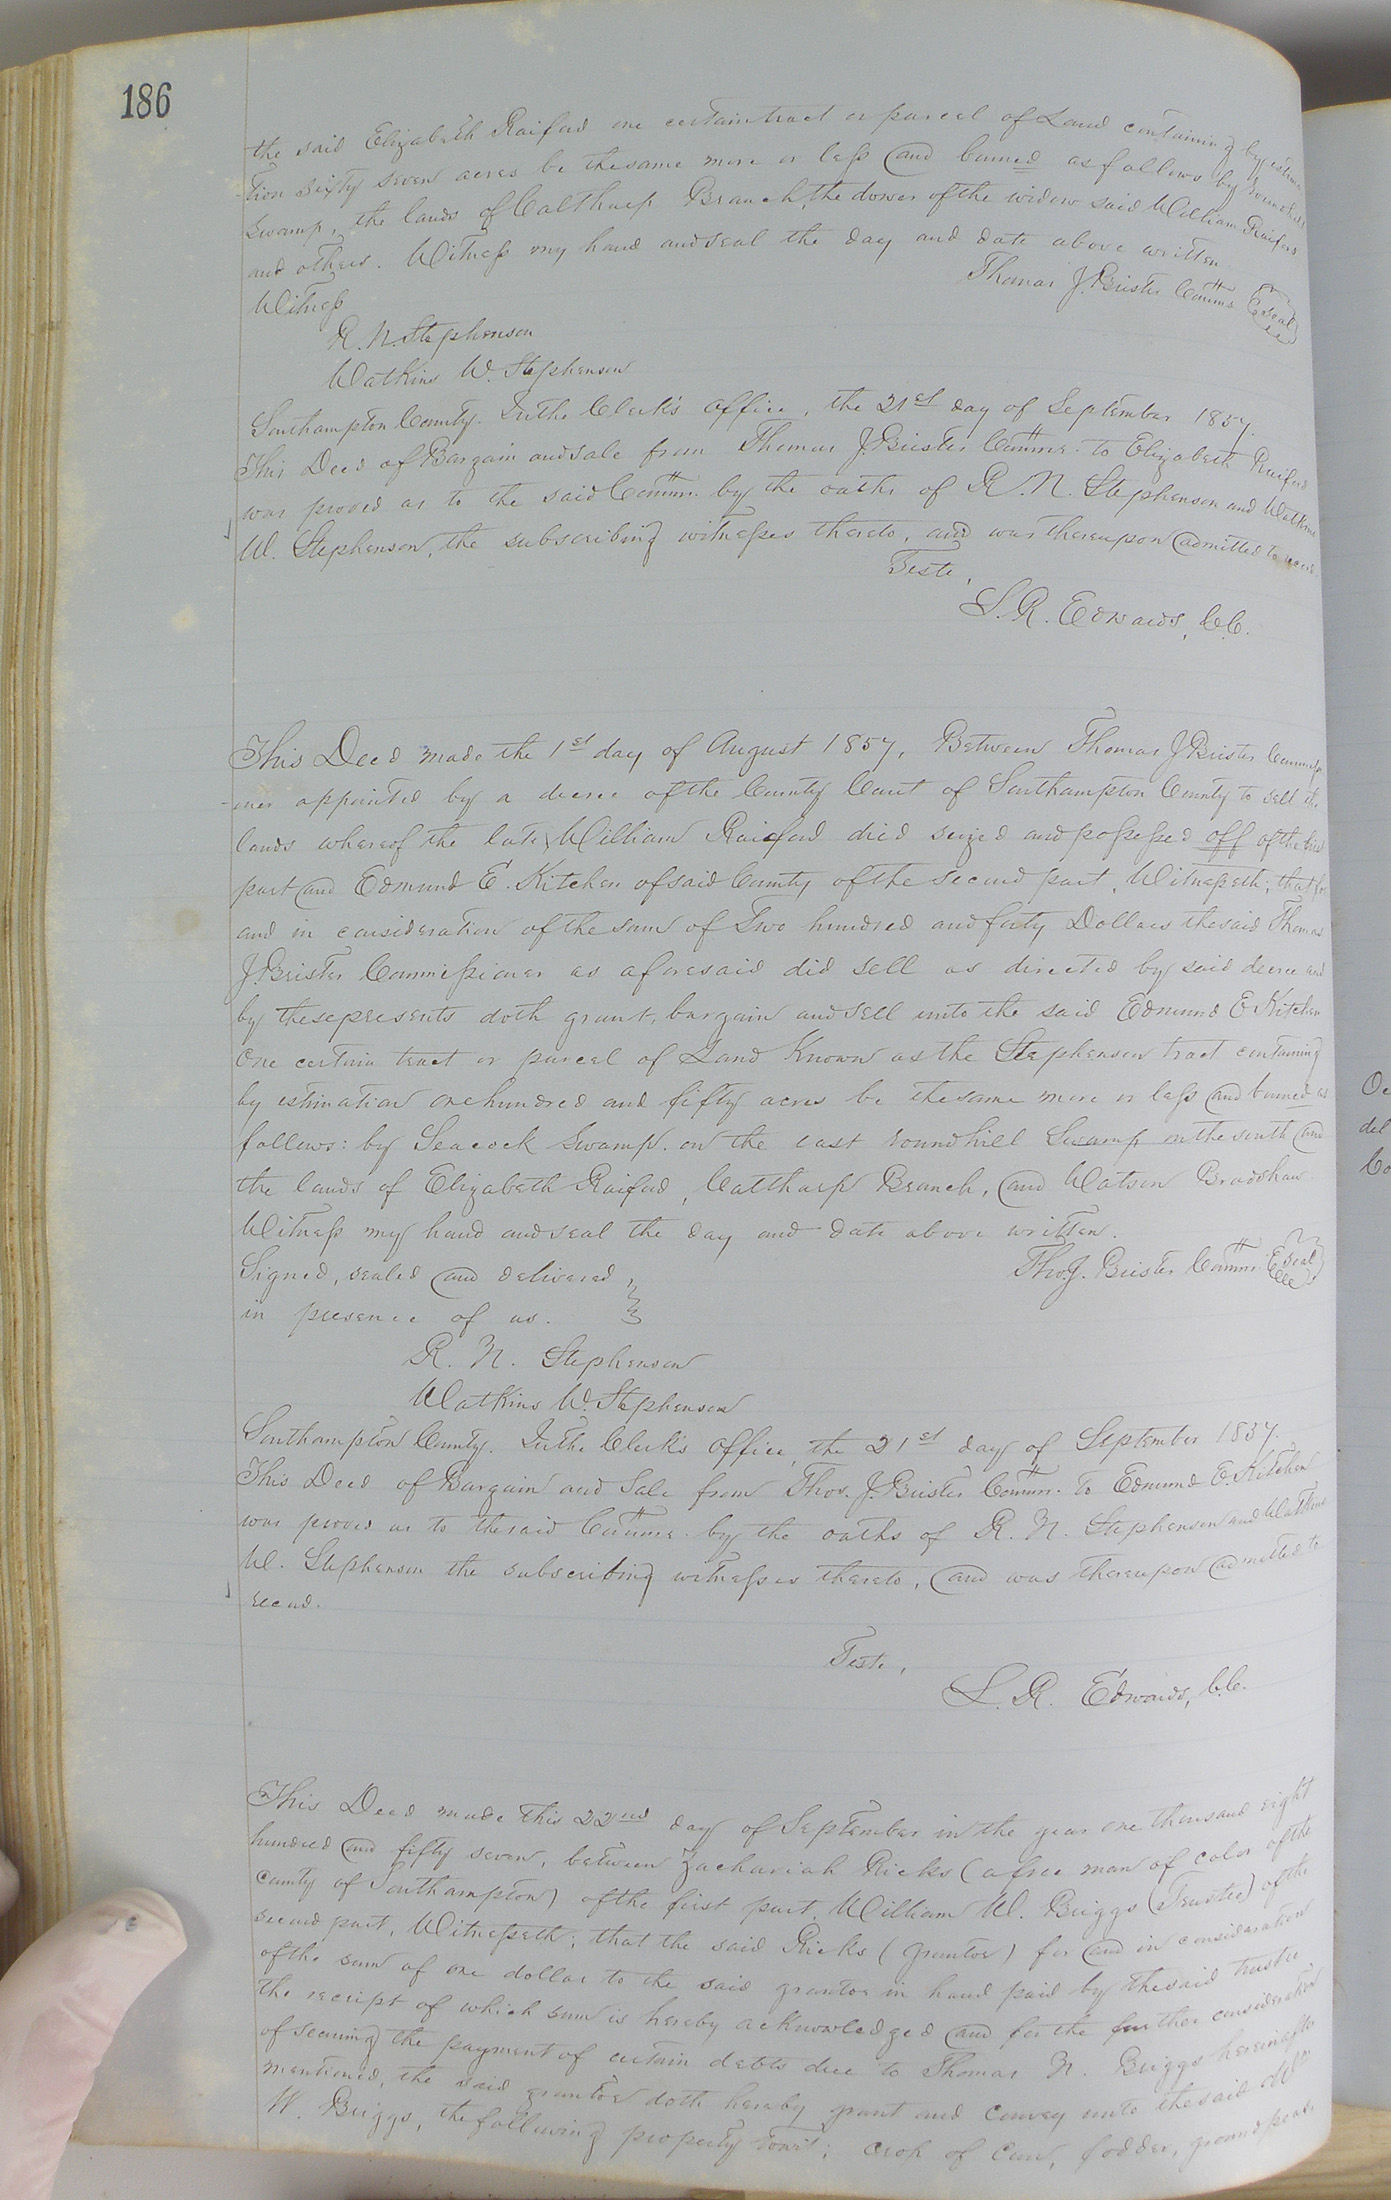 186
the said Elizabeth Raiford one certain tract or parcel of Land containing by estima
tion sixty seven acres be the same more or less and bouned as follows by roundhill
Swamp, the lands of Caltharp Branch, the dower of the widow said William Raiford
and others. Witness my hand and seal the day and date above written
Thomas J. Brister Comms Seal
Witness
R. N. Stephenson
Watkins W. Stephenson
Southampton County. In the Clerk's office, the 21st day of September 1857.
This Deed of Bargain and sale from Thomas J. Brister Commr. to Elizabeth Raiford
was proved as to the said Commr. by the oaths of R. N. Stephenson and Watkins
W. Stephenson, the subscribing witnesses thereto, and was thereupon admitted to record.
Teste,
L. R. Edwards, C.C.
This Deed made the 1st day of August 1857, Between Thomas J Brister Commissi
oner appointed by a decree of the County Court of Southampton County to sell the
lands whereof the late William Raiford died seized and possessed off of the first
part and Edmund E. Kitchen of said County of the second part, Witnesseth; that for
and in consideration of the sum of Two hundred and forty Dollars the said Thomas
J. Brister Commissioner as aforesaid did sell as directed by said decree and
by these presents doth grant, bargain and sell unto the said Edmund E Kitchen
One certain tract or parcel of Land Known as the Stephenson tract containing
by estimation one hundred and fifty acres be the same more or less and bouned as
follows: by Seacock Swamp on the east roundhill Swamp on the south and
the lands of Elizabeth Raiford, Caltharp Branch, and Watson Bradshaw
Witness my hand and seal the day and date above written.
Signed, sealed and delivered
Thos J. Brister Commr. Seal
in presence of us.
R. N. Stephenson
Watkins W. Stephenson
Southampton County. In the Clerk's office, the 21st day of September 1857.
This Deed of Bargain and Sale from Thos. J. Brister Commr. to Edmund E. Kitchen
was proved as to the said Commr. by the oaths of R. N. Stephenson and Watkins
W. Stephenson the subscribing witnesses thereto, and was thereupon admitted to
record.
Teste,
L. R. Edwards, C.C.
This Deed made this 22nd day of September in the year one thousand eight
hundred and fifty seven, between Zachariah Ricks (a free man of color of the
county of Southampton) of the first part, William W. Briggs (Trustee) of the
second part, Witnesseth; that the said Ricks (grantor) for and in consideration
of the sum of one dollar to the said grantor in hand paid by the said trustee
the receipt of which sum is hereby acknowledged and for the further consideration
of securing the payment of certain debts due to Thomas N. Briggs hereinafter
mentioned, the said grantor doth hereby grant and convey unto the said Wm
W. Briggs, the following property towit; crop of Corn, fodder, ground peas,